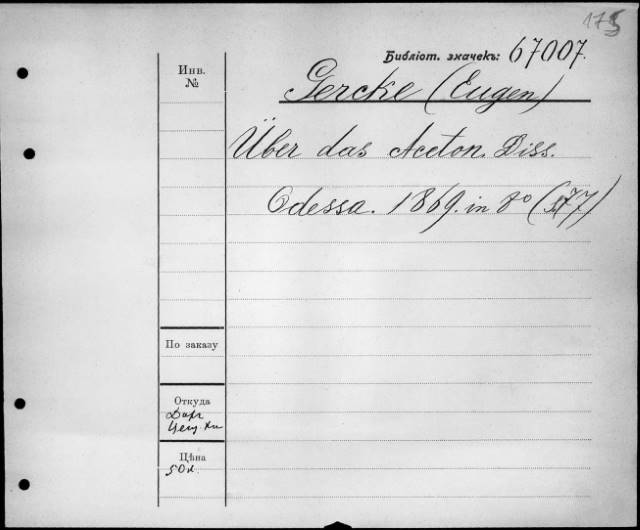 175
Библіот. значекъ: 67007.
Инв.
№
Gercke (Eugen)
Über das Aceton. Diss.
Odessa. 1869. in 8° (77)
По заказу
Откуда
Даръ
Цѣна
50 к.